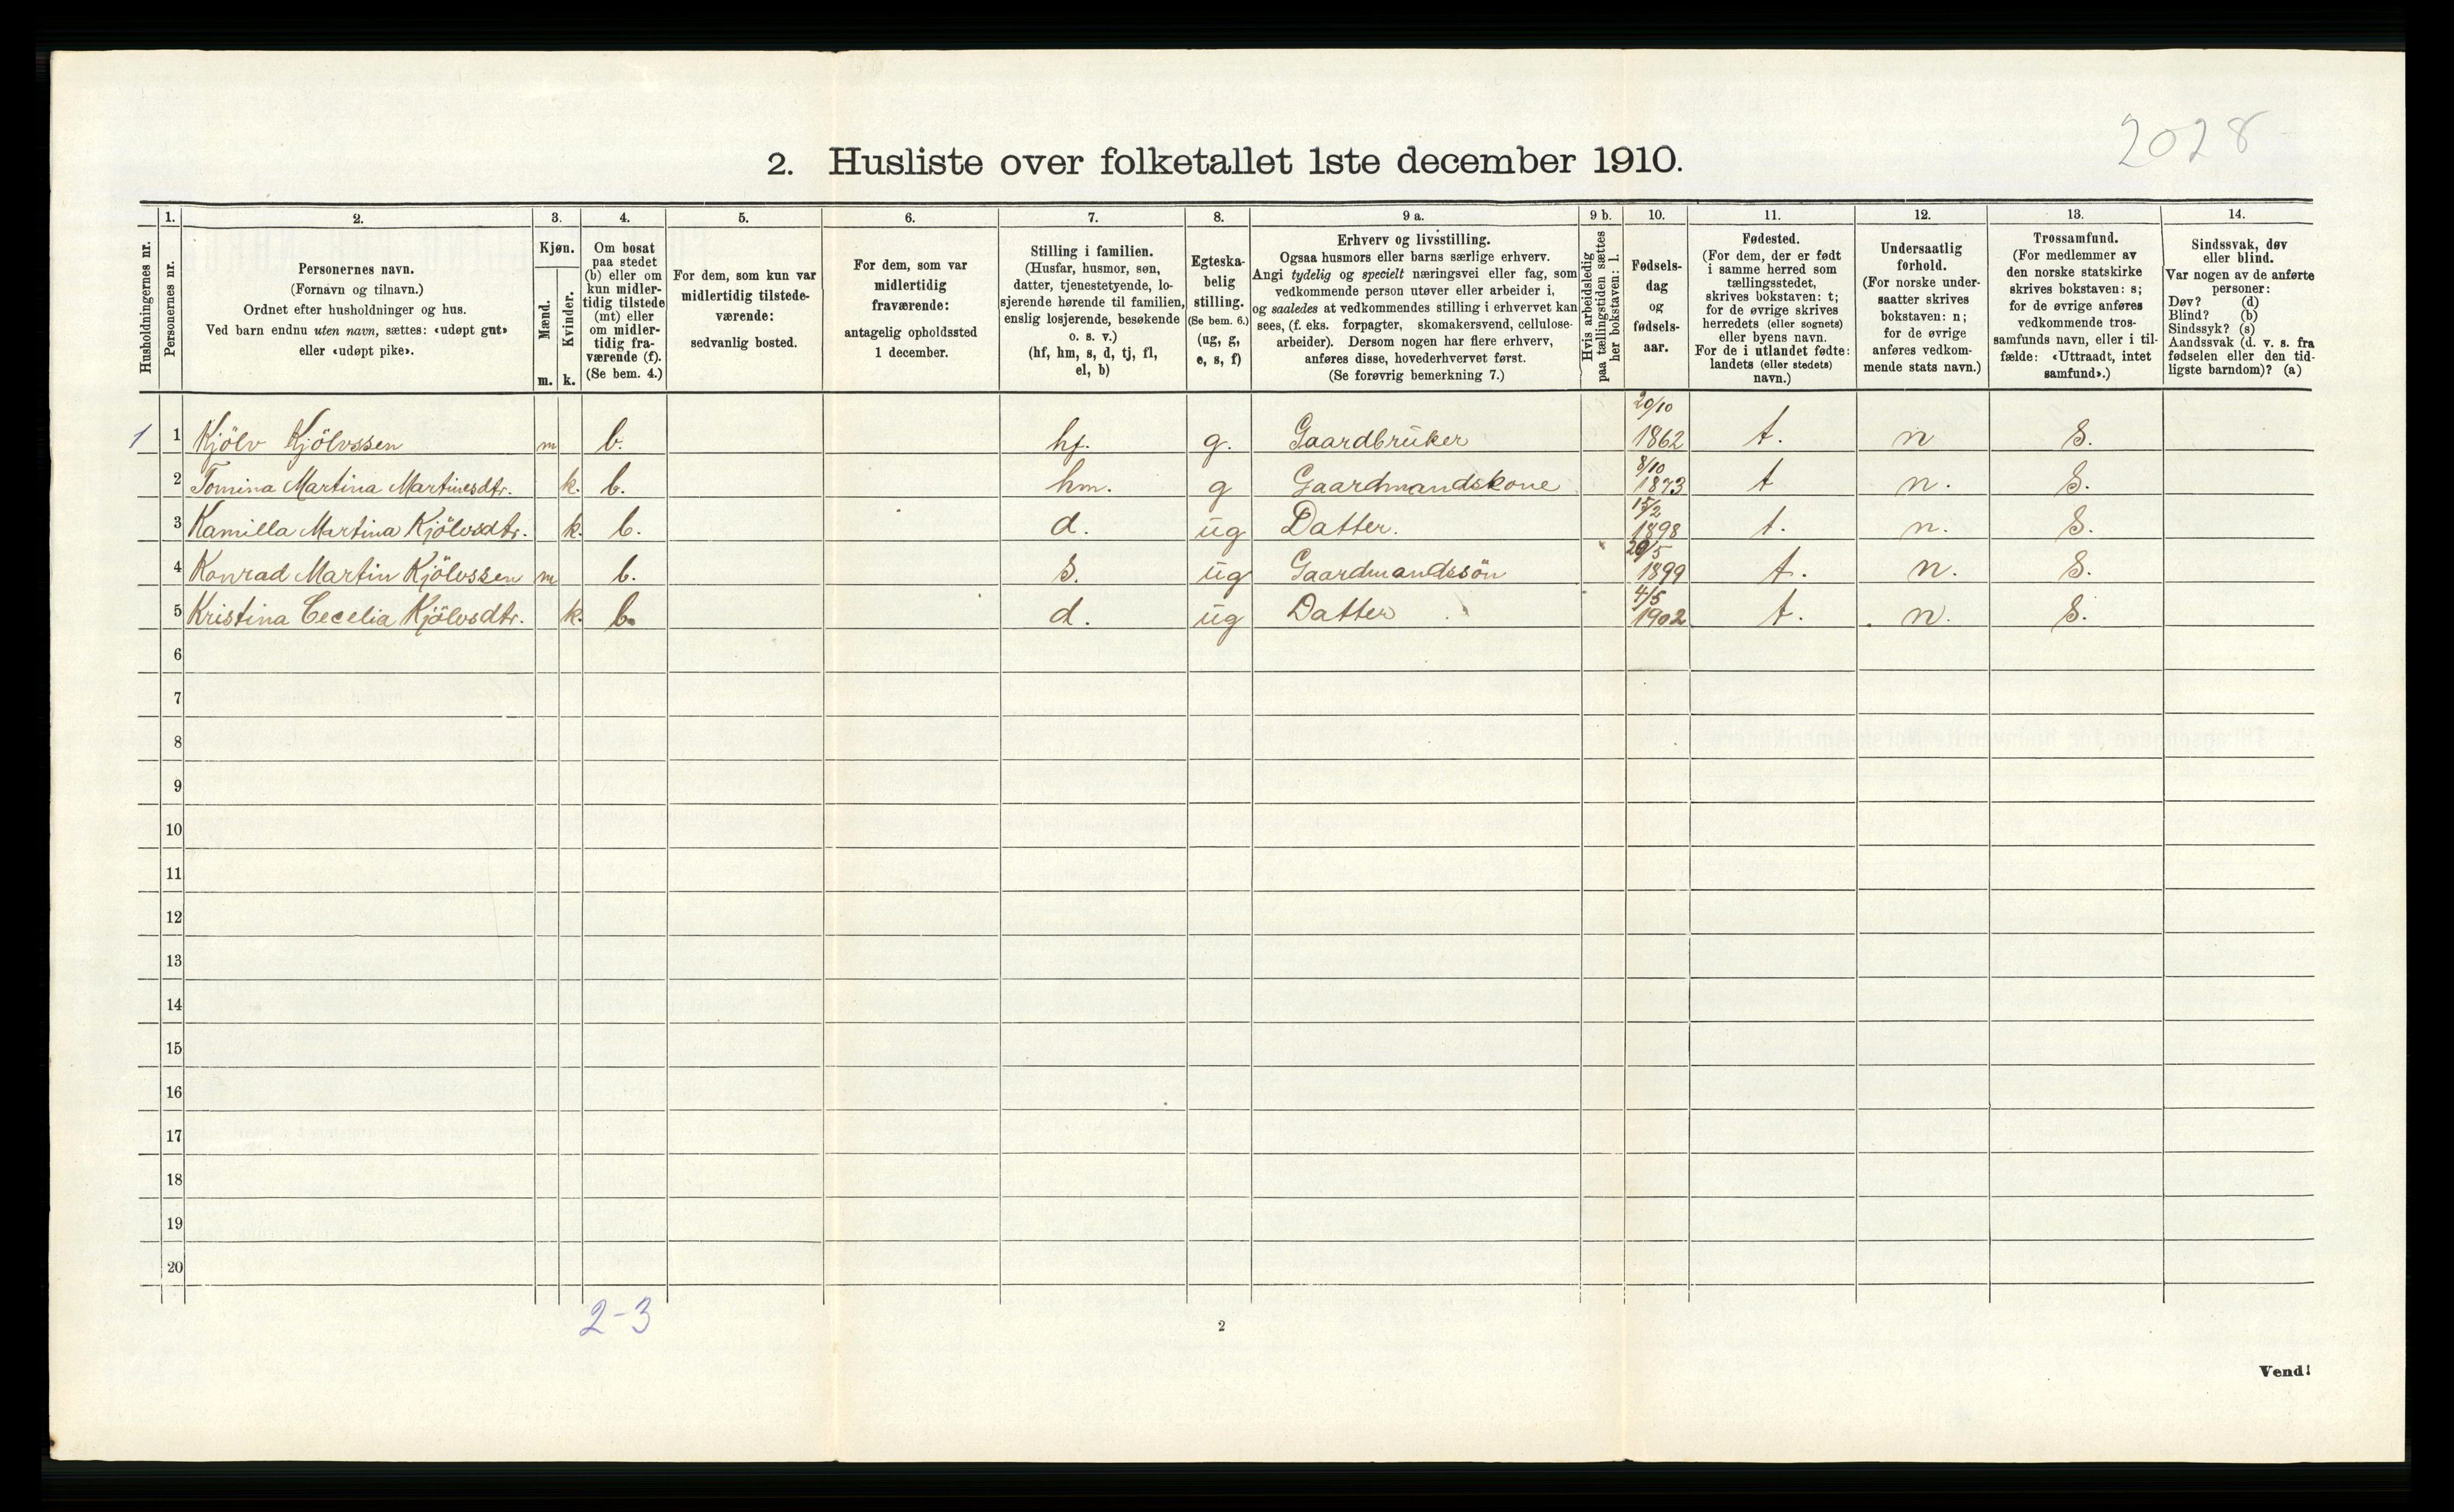 2028
2. Husliste over folketallet 1ste december 1910.
Husholdningernes nr.
1. Personernes nr.
2. Personernes navn.
(Fornavn og tilnavn.)
Ordnet efter husholdninger og hus.
Ved barn endnu uten navn, sættes: «udøpt gut»
eller «udøpt pike».
3. Kjøn.
Mænd. m.
Kvinder. k.
4. Om bosat
paa stedet
(b) eller om
kun midler-
tidig tilstede
(mt) eller
om midler-
tidig fra-
værende (f).
(Se bem. 4.)
5. For dem, som kun var
midlertidig tilstede-
værende:
sedvanlig bosted.
6. For dem, som var
midlertidig
fraværende:
antagelig opholdssted
1 december.
7. Stilling i familien.
(Husfar, husmor, søn,
datter, tjenestetyende, lo-
sjerende hørende til familien,
enslig losjerende, besøkende
o. s. v.)
(hf, hm, s, d, tj, fl,
el, b)
8. Egteska-
belig
stilling.
(Se bem. 6.)
(ug, g,
e, s, f)
9 a. Erhverv og livsstilling.
Ogsaa husmors eller barns særlige erhverv.
Angi tydelig og specielt næringsvei eller fag, som
vedkommende person utøver eller arbeider i,
og saaledes at vedkommendes stilling i erhvervet kan
sees, (f. eks. forpagter, skomakersvend, cellulose-
arbeider). Dersom nogen har flere erhverv,
anføres disse, hovederhvervet først.
(Se forøvrig bemerkning 7.)
9 b. Hvis arbeidsledig
paa tællingstiden sættes
her bokstaven: l.
10. Fødsels-
dag
og
fødsels-
aar.
11. Fødested.
(For dem, der er født
i samme herred som
tællingsstedet,
skrives bokstaven: t;
for de øvrige skrives
herredets (eller sognets)
eller byens navn.
For de i utlandet fødte:
landets (eller stedets)
navn.)
12. Undersaatlig
forhold.
(For norske under-
saatter skrives
bokstaven: n;
for de øvrige
anføres vedkom-
mende stats navn.)
13. Trossamfund.
(For medlemmer av
den norske statskirke
skrives bokstaven: s;
for de øvrige anføres
vedkommende tros-
samfunds navn, eller i til-
fælde: «Uttraadt, intet
samfund».)
14. Sindssvak, døv
eller blind.
Var nogen av de anførte
personer:
Døv? (d)
Blind? (b)
Sindssyk? (s)
Aandssvak (d. v. s. fra
fødselen eller den tid-
ligste barndom)? (a)
1 1 Kjölv Kjölvssen m b. hf. g. Gaardbrüker 20/10 1862 t. n S.
2 Tomina Martina Martinesdtr. k. b. hm. g Gaardmandskone 8/10 1873 t n. S.
3 Kamilla Martina Kjölvsdtr. k. b. d. üg Datter. 15/2 1898 t. n. S.
4 Konrad Martin Kjölvssen m b. S. üg Gaardmandssön 20/5 1899 t. n. S.
5 Kristina Cecelia Kjölvsdtr. k. b. d. üg Datter 4/5 1902 t. n. S.
6
7
8
9
10
11
12
13
14
15
16
17
18
19
20
2-3
2
Vend!